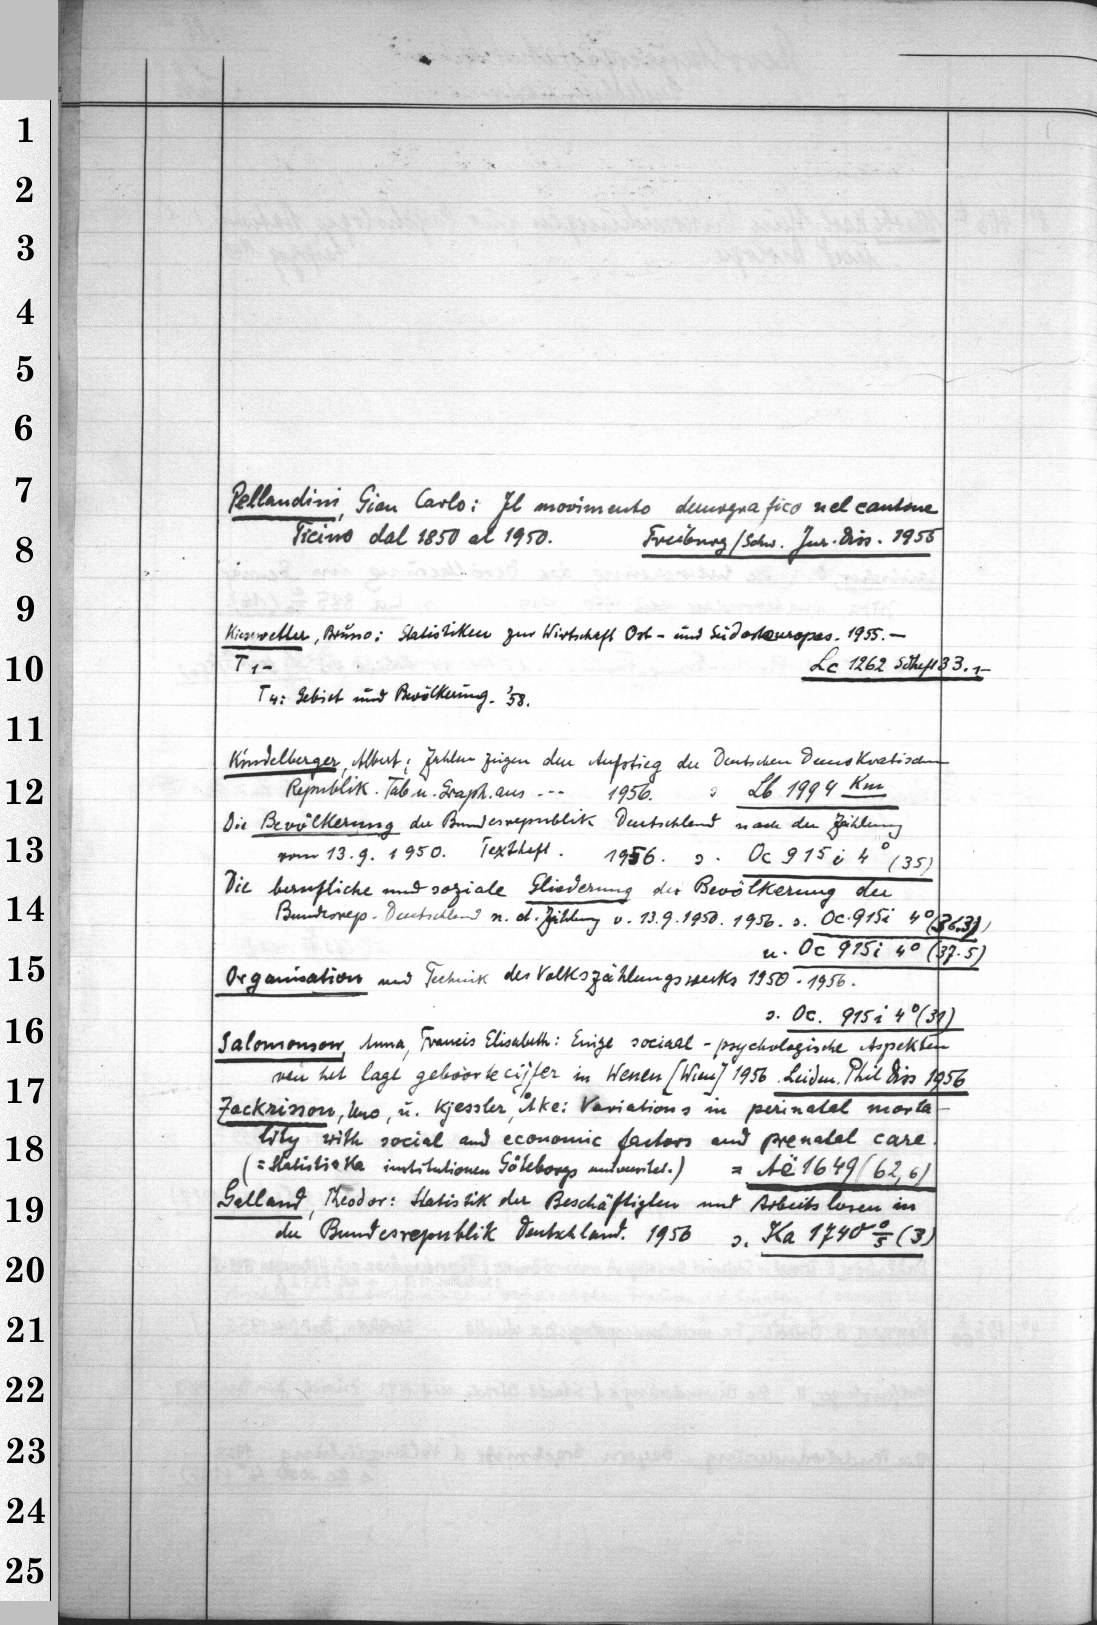 1
2
3
4
5
6
7
Pellandini, Gian Carlo: Il movimento demografico nel cantone
8
Ticino dal 1850 al 1950. Freiburg/Schw. Jur. Diss. 1956
9
Kiesewetter, Bruno: Statistiken zur Wirtschaft Ost- und Südosteuropas. 1955.-
10
T 1- Lc 1262 33.1-
T 4: Gebiet und Bevölkerung. '58.
11
Kindelberger, Albert: Zahlen zeigen den Aufstieg der Deutschen Demokratischen
12
Republik. Tab. u. Graph. aus --- 1956. s Lb 1994 Km
Die Bevölkerung der Bundesrepublik Deutschland nach der Zählung
13
vom 13.9.1950. Textheft. 1956. s. Oc 915 i 4° (35)
Die berufliche und soziale Gliederung der Bevölkerung der
14
Bundesrep. Deutschland n. d. Zählung v. 13.9.1950. 1956. s. Oc. 915i 4° (36.3)
u. Oc 915i 4° (37.5)
15
Organisation und Technik des Volkszählungswerks 1950. 1956.
s. Oc. 915 i 4° (31)
16
Salomonson, Anna, Francis Elisabeth: Enige sociaal-psychologische Aspekten
van het lage geboortecijfer in Wenen [Wien] 1956. Leiden. Phil Diss 1956
17
Zackrisson, Uno, u. Kjessler, Åke: Variations in perinatal morta-
18
lity with social and economic factors and prenatal care.
(= Statistiska institutionen Göteborgs universitet.) = Aë 1649 (62,6)
19
Galland, Theodor: Statistik der Beschäftigten und Arbeitslosen in
der Bundesrepublik Deutschland. 1956 s. Ka 1740 (3)
20
21
22
23
24
25